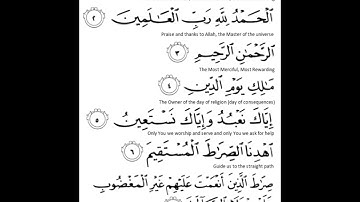 ٱلْحَمْدُ لِلَّهِ رَبِّ ٱلْعَٰلَمِينَ ٢
Praise and thanks to Allah, the Master of the universe
ٱلرَّحْمَٰنِ ٱلرَّحِيمِ ٣
The Most Merciful, Most Rewarding
مَٰلِكِ يَوْمِ ٱلدِّينِ ٤
The Owner of the day of religion (day of consequences)
إِيَّاكَ نَعْبُدُ وَإِيَّاكَ نَسْتَعِينُ ٥
Only You we worship and serve and only You we ask for help
ٱهْدِنَا ٱلصِّرَٰطَ ٱلْمُسْتَقِيمَ ٦
Guide us to the straight path
صِرَٰطَ ٱلَّذِينَ أَنْعَمْتَ عَلَيْهِمْ غَيْرِ ٱلْمَغْضُوبِ